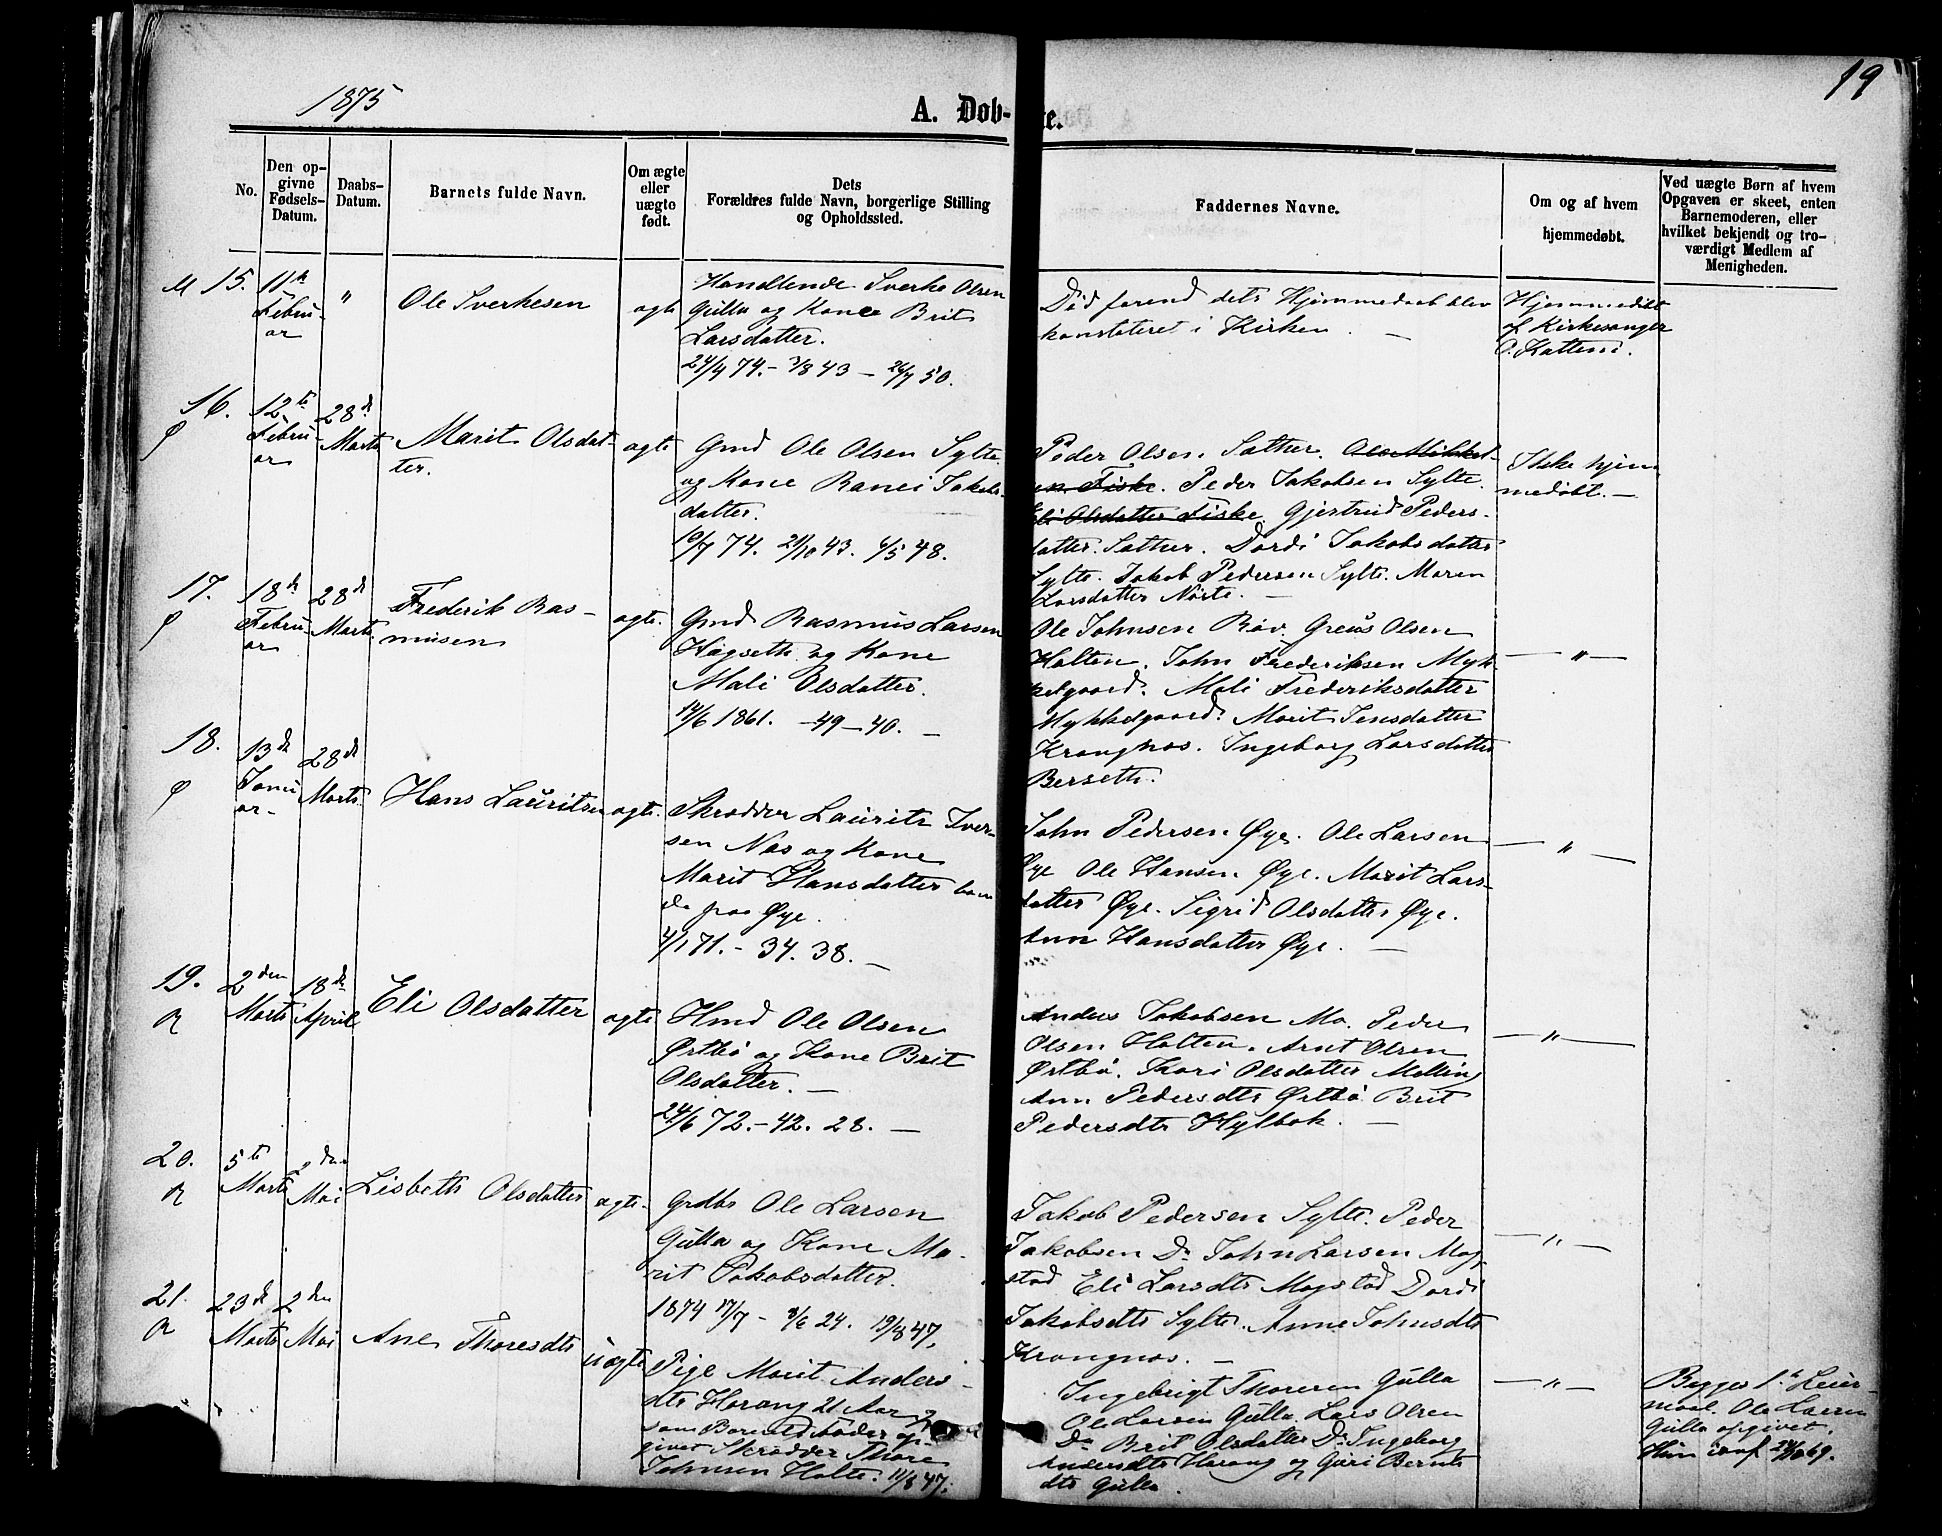 1875
19
A. Døb-
te.
No.
Den op-
givne
Fødsels-
Datum.
Daabs-
Datum.
Barnets fulde Navn.
Om ægte
eller
uægte
født.
Dets
Forældres fulde Navn, borgerlige Stilling
og Opholdssted.
Faddernes Navne.
Om og af hvem
hjemmedøbt.
Ved uægte Børn af hvem
Opgaven er skeet, enten
Barnemoderen, eller
hvilket bekjendt og tro-
værdigt Medlem af
Menigheden.
15.
11te
Febru-
ar
"
Ole Sverkesen
ægte
Handlende Sverke Olsen
Gülla og Kone Brit
Larsdatter.
Død førend dets Hjemmedaab blev
konstateret i Kirken. —
Hjemmedøbt
af Kirkesanger
16.
12te
Febru-
ar
28de
Marts
Marit Olsdat-
ter.
ægte
Gmd Ole Olsen Sylte
og Kone Ranei Jakobs-
datter.
Peder Olsen Sæther. Ole Mikkel-
sen Fiske. Peder Jakobsen Sylte.
Eli Olsdatter Fiske. Gjertrud Peders-
datter Sæther. Dordi Jakobsdatter
Sylte. Jakob Pedersen Sylte. Maren
Larsdatter Nørte. —
Ikke hjem
medøbt. —
17.
18de
Febru-
ar
28de
Marts
Frederik Ras-
musen
ægte.
Gmd Rasmus Larsen
Hägseth og Kone
Mali Olsdatter.
14/6 1861. — 49 — 40. —
Ole Johnsen Röv. Greüs Olsen
Holten. John Frederiksen Myk-
kelgaard. Mali Frederiksdatter
Mykkelgaard. Marit Jensdatter
Krangnæs. Ingeborg Larsdatter
Berseth.
— " —
18.
13de
Janu
ar
28de
Marts.
Hans Lauritsen
ægte.
Skrædder Laurits Iver-
sen Næs og Kone
Marit Hansdatter
paa Øye.
4/1 71. — 34. 38. —
John Pedersen Øye. Ole Larsen
Øye Ole Hansen Øye. Marit Lars-
datter Øye. Sigrid Olsdatter Øye.
Ann Hansdatter Øye. —
— " —
19.
2den
Marts
18de
April
Eli Olsdatter
ægte
Hmd Ole Olsen
Ørtbö og Kone Brit
Olsdatter. —
24/6 72. — 42. 28. —
Anders Jakobsen Mo. Peder
Olsen Holten. Arnt Olsen
Ørtbö. Kari Olsdatter Melling
Ann Pedersdtr Ørtbö Brit
Pedersdtr Hylbak. —
— " —
20.
5te
Marts
2den
Mai
Lisbeth Olsdatter
ægte.
Grdbr Ole Larsen
Gülla og Kone Ma-
rit Jakobsdatter.
Jakob Pedersen Sylte. Peder
Jakobsen Do John Larsen Mog-
stad Eli Larsdtr Mogstad Dordi
Jakobsdtr Sylte. Anne Johnsdtr
Krangnæs. —
— " —
21.
23de
Marts
2den
Mai
Ane Thoresdtr
uægte
Pige Marit Anders-
dtr Harang 21 Aar og
som Barnefader op-
givet Skrædder Thore
Johnsen Holte. 11/8 47.
Ingebrigt Thoresen Gülla
Ole Larsen Gülla. Lars Olsen
Do Brit Olsdatter Do Ingeborg
Andersdtr Harang og Guri Bernts
dtr Gülla.
— " —
Begges 1te Leier-
maal. Ole Larsen
Gülla opgivet.